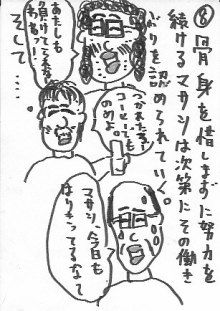 ⑧骨身を惜しまずに努力を
続けるマサシは次第にその働き
ぶりを認められていく。
そして……
あたしも
負けてられ
ないわあっ!
つかれたろ
コーヒーでも
のめよ
マサシ、今日も
はりきってるなて